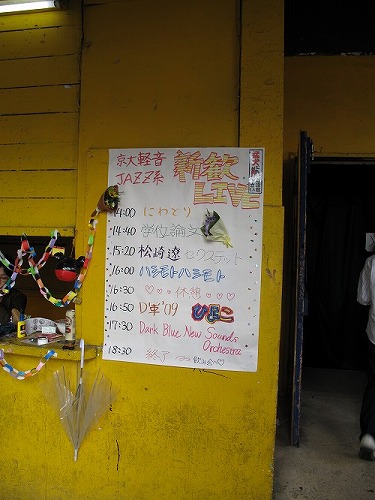 京大軽音
JAZZ系
新歓
LIVE
14:00 にわとり
14:40 学位論文
15:20 松崎遼セクステット
16:00 ハシモトハシモト
16:30 ♡♡♡休憩♡♡♡
16:50 D軍'09 ひよこ
17:30 Dark Blue New Sounds
Orchestra
18:30 終了